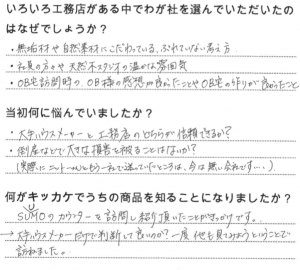 いろいろ工務店がある中でわが社を選んでいただいたの
はなぜでしょうか？
・無垢材や自然素材にこだわっている、ぶれていない考え方
・社員の方々や天然木スタジオの温かな雰囲気
・OB宅訪問時の、OB様の感想が良かったことやOB宅の造りが良かったこと
当初何に悩んでいましたか？
・大手ハウスメーカーと工務店のどちらが信頼できるか？
・倒産などで大きな損害を被ることはないか？
（実際に
ともう一社で迷っていたところは、今は無い会社です…）
何がキッカケでうちの商品を知ることになりましたか？
SUMOのカウンターを訪問し紹介頂いたことがきっかけです。
→大手ハウスメーカーだけで判断して良いのか？一度他も見てみようということで
訪ねました。